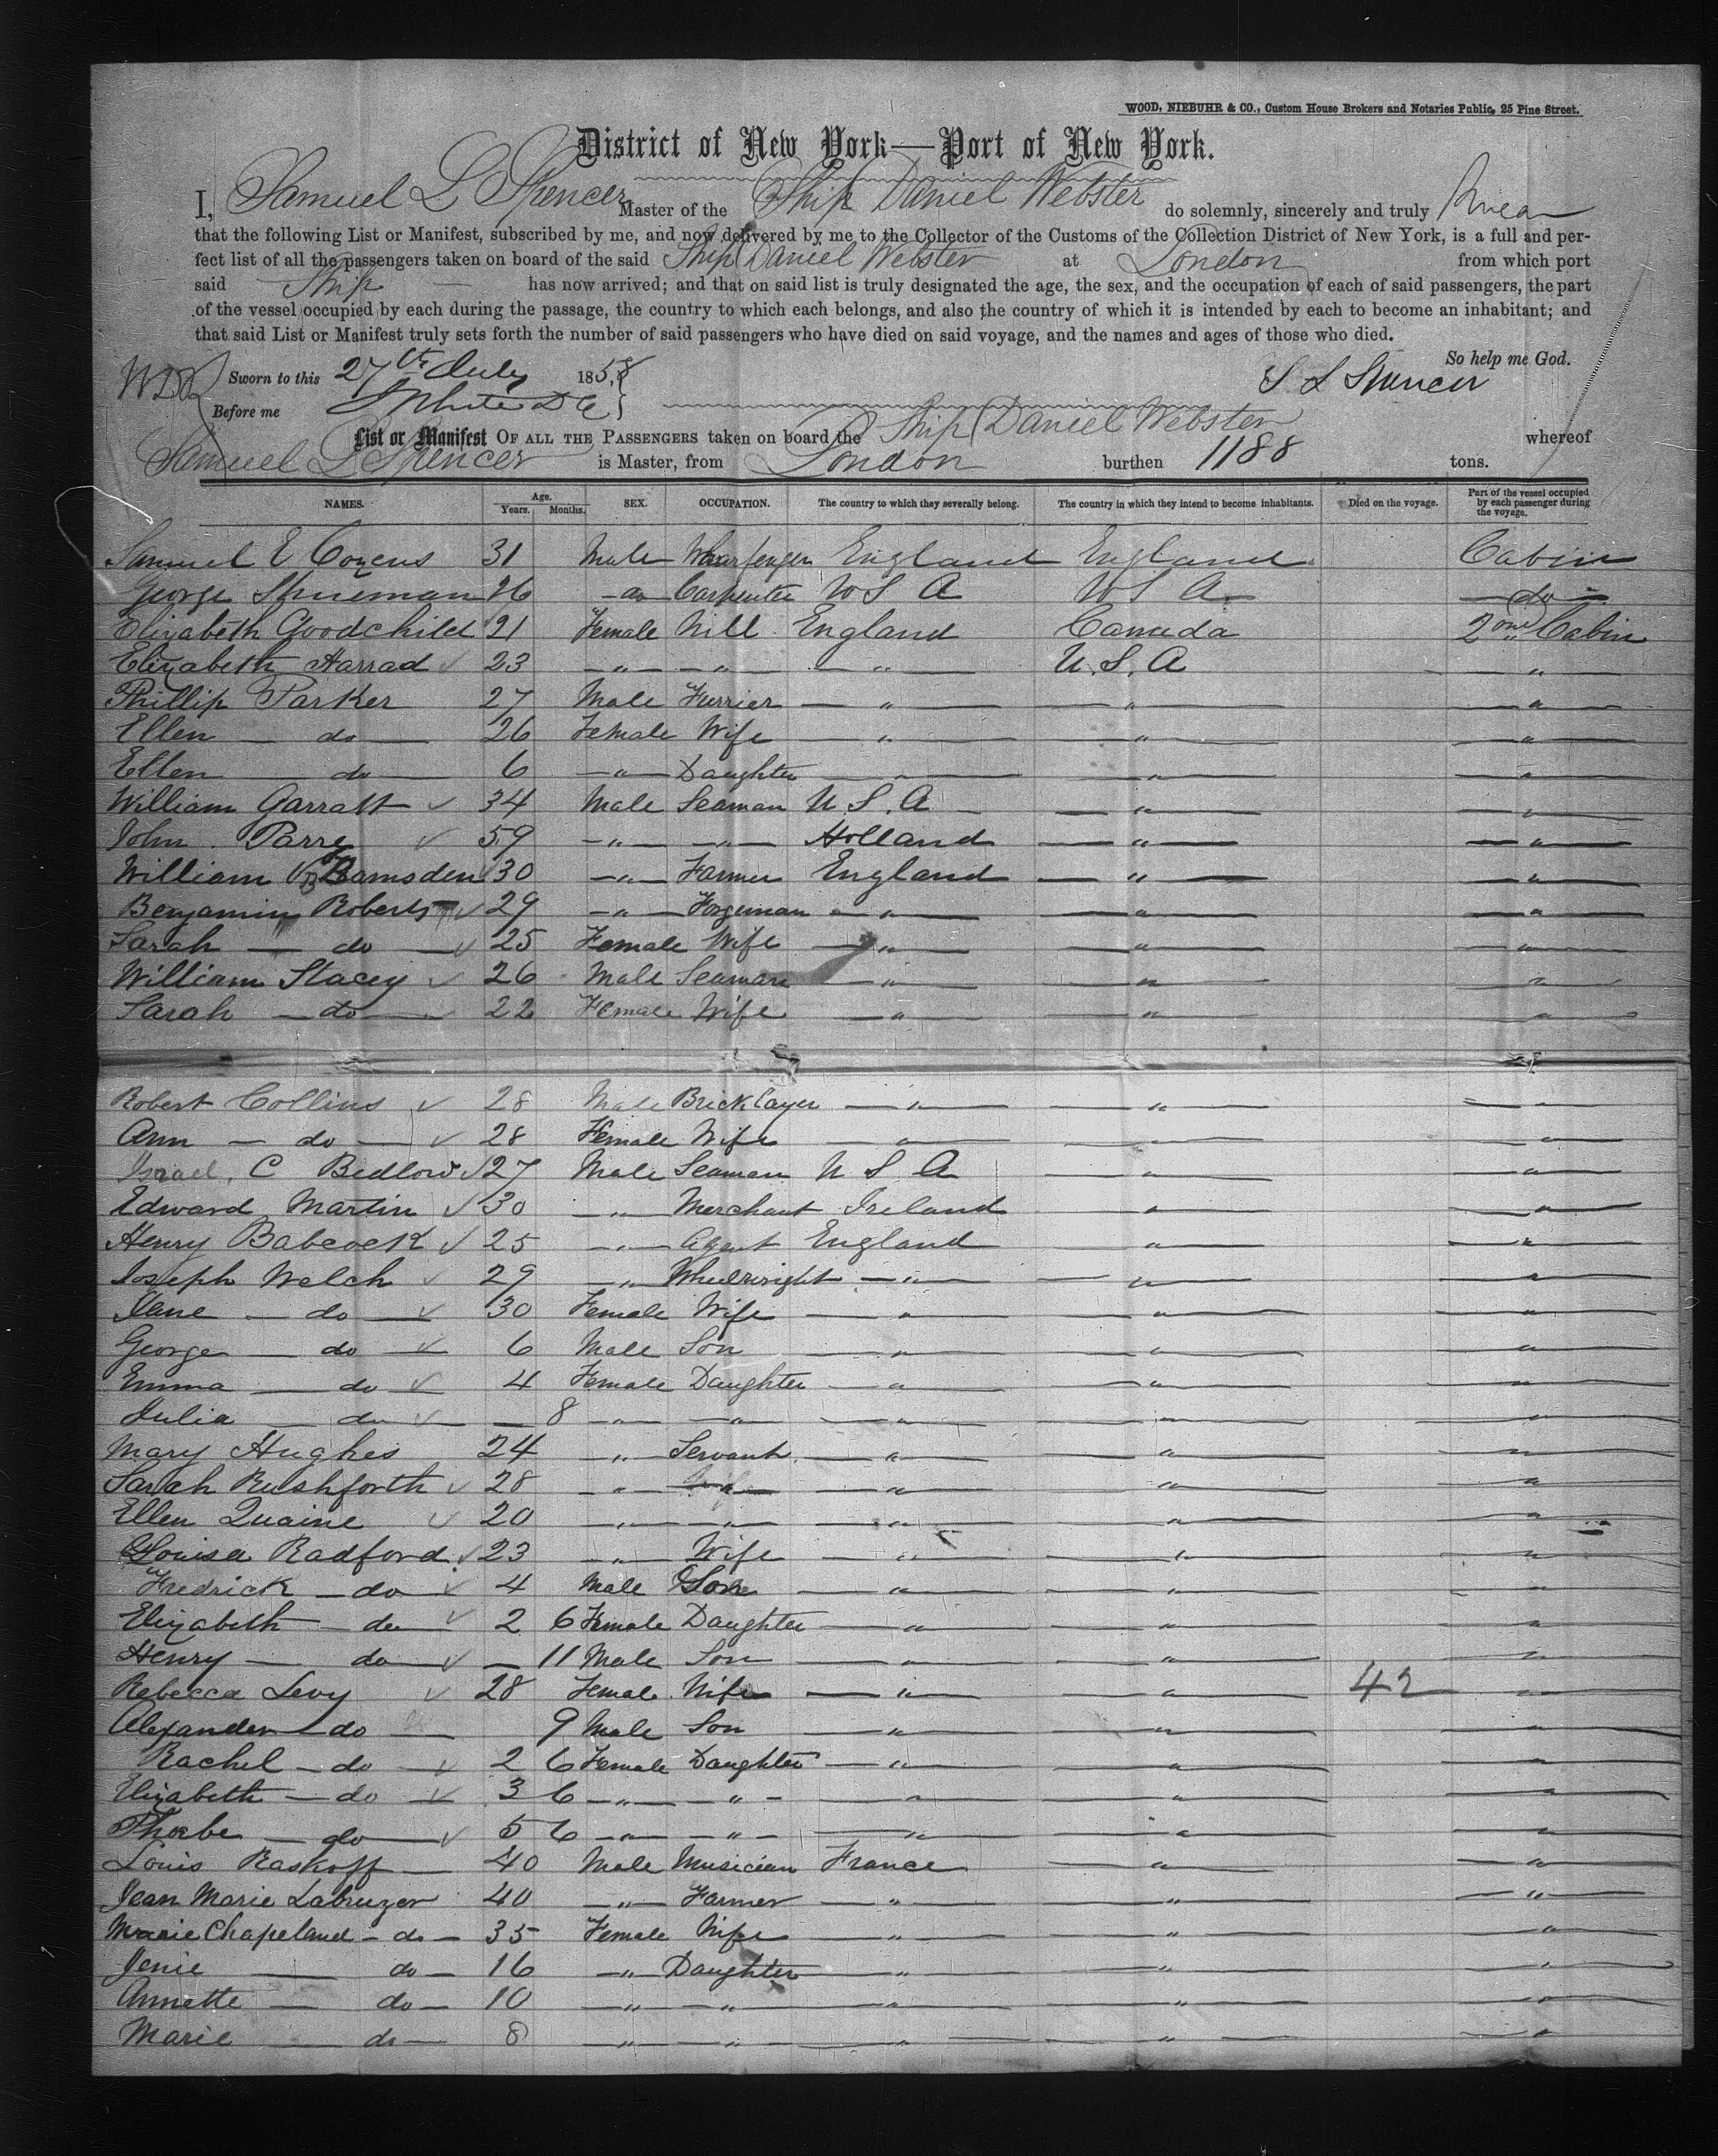 WOOD, NIEBUHR & CO., Custom House Brokers and Notaries Public, 25 Pine Street.
District of New York—Port of New York.
I, Samuel L Spencer Master of the Ship Daniel Webster do solemnly, sincerely and truly swear
that the following List or Manifest, subscribed by me, and now delivered by me to the Collector of the Customs of the Collection District of New York, is a full and per-
fect list of all the passengers taken on board of the said Ship Daniel Webster at London from which port
said Ship has now arrived; and that on said list is truly designated the age, the sex, and the occupation of each of said passengers, the part
of the vessel occupied by each during the passage, the country to which each belongs, and also the country of which it is intended by each to become an inhabitant; and
that said List or Manifest truly sets forth the number of said passengers who have died on said voyage, and the names and ages of those who died.
So help me God.
Sworn to this 27th July 1858 S L Spencer
Before me
List or Manifest OF ALL THE PASSENGERS taken on board the Ship Daniel Webster whereof
Samuel L Spencer is Master, from London burthen 1188 tons.
NAMES. Age. Years. Months. SEX. OCCUPATION. The country to which they severally belong. The country in which they intend to become inhabitants. Died on the voyage. Part of the vessel occupied by each passenger during the voyage.
Samuel E Cozens 31 Male Wharfenger England England Cabin
George 26 -do- Carpenter U S A U S A - do -
Elizabeth Goodchild 21 Female Nill England Canada 2nd Cabin
Elizabeth Harrad 23 -"- -"- -"- U. S. A "
Phillip Parker 27 Male Furrier " " "
Ellen - do - 26 Female Wife " " "
Ellen - do - 6 -"- Daughter " " "
William Garratt 34 Male Seaman U. S. A " "
John Parry 59 -"- -"- Holland " "
William Ramsden 30 -"- Farmer England " "
Benjamin Roberts 29 -"- Forgeman " " "
Sarah - do - 25 Female Wife " " "
William Stacey 26 Male Seaman " " "
Sarah - do - 22 Female Wife " " "
Robert Collins 28 Male Bricklayer " " "
Ann - do - 28 Female Wife " " "
Israel. C Bedlow 27 Male Seaman U S A " "
Edward Martin 30 -"- Merchant Ireland " "
Henry Babcock 25 -"- Agent England " "
Joseph Welch 29 -"- Wheelwright " " "
Jane - do - 30 Female Wife " " "
George - do - 6 Male Son " " "
Emma - do 4 Female Daughter " " "
Julia - do - - 8 -"- -"- " " "
Mary Hughes 24 -"- Servant " " "
Sarah Rushforth 28 -"- -"- " " "
Ellen Quaine 20 -"- -"- " " "
Louisa Radford 23 -"- Wife " " "
Fredrick - do 4 Male Son " " "
Elizabeth - do 2 6 Female Daughter " " "
Henry - do - 11 Male Son " " "
Rebecca Levy 28 Female Wife " " 42 "
Alexander - do - 9 Male Son " " "
Rachel - do 2 6 Female Daughter " " "
Elizabeth - do 3 6 -"- -"- " " "
Phoebe - do 5 6 -"- -"- " " "
Louis Raskoff 40 Male Musician France " "
Jean Marie Labruzer 40 -"- Farmer " " "
Marie Chapeland - do - 35 Female Wife " " "
Jenie - do - 16 -"- Daughter " " "
Annette - do - 10 -"- -"- " " "
Marie - do - 8 -"- -"- " " "